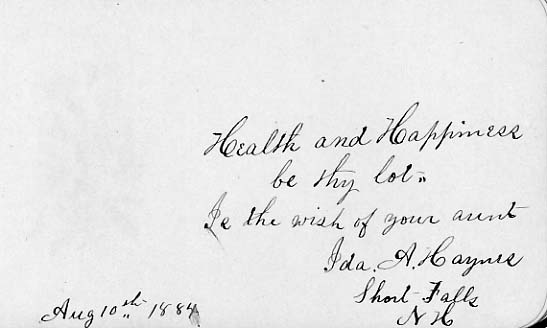 Health and Happiness
be thy lot.
Is the wish of your aunt
Ida. A. Haynes
Short Falls
N H
Aug 10th 1884